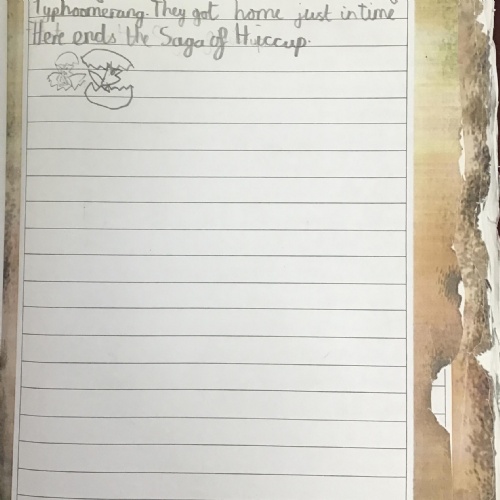 Typhoomerang. They got home just in time
Here ends the Saga of Hiccup.